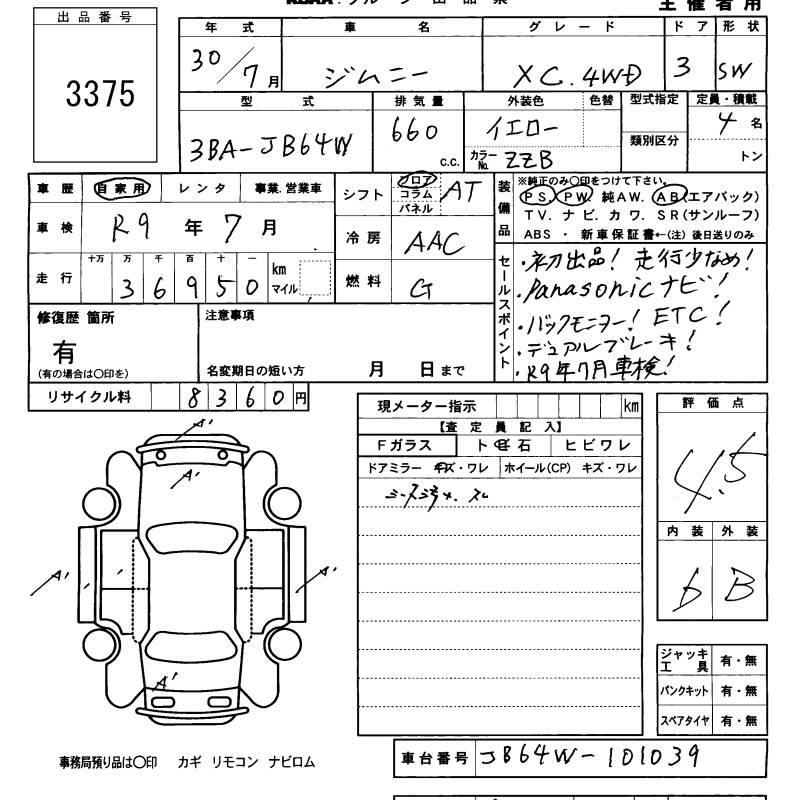 出品番号
3375
主催者用
年式 車名 グレード ドア 形状
30/7月 ジムニー XC.4WD 3 SW
型式 排気量 外装色 色替 型式指定 定員・積載
3BA-JB64W 660 c.c. イエロー 類別区分 4名
カラーNo. ZZB トン
車歴 自家用 レンタ 事業.営業車
車検 R9年7月
走行 十万 万 千 百 十 一
36950 km マイル
シフト フロア コラム パネル AT
冷房 AAC
燃料 G
装備品 ※純正のみ〇印をつけて下さい。
PS. PW. 純AW. AB(エアバッグ)
TV. ナビ. カワ. SR(サンルーフ)
ABS・新車保証書←(注)後日送りのみ
セールスポイント
・初出品! 走行少なめ!
・Panasonicナビ!
・バックモニター! ETC!
・デュアルブレーキ!
・R9年7月車検!
修復歴 箇所
有
(有の場合は〇印を)
注意事項
名変期日の短い方 月 日まで
リサイクル料 8360円
現メーター指示 km
【査定員記入】
Fガラス ト飛石 ヒビワレ
ドアミラー キズ・ワレ ホイール(CP) キズ・ワレ
評価点
4.5
内装 外装
b B
A' A' A' A' A'
ジャッキ工具 有・無
パンクキット 有・無
スペアタイヤ 有・無
事務局預り品は〇印 カギ リモコン ナビロム
車台番号 JB64W-101039